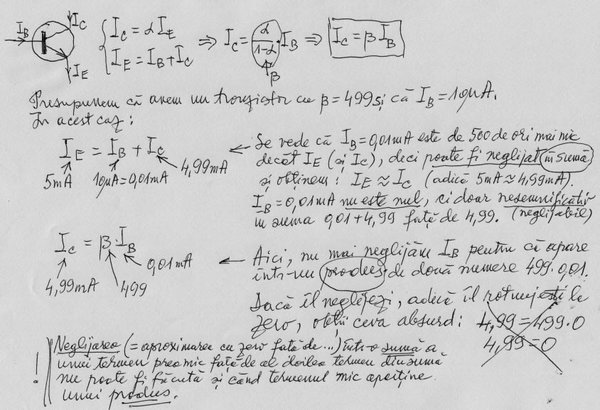 I_B I_C I_E { I_C = α I_E ⇒ I_C = α/(1-α) I_B ⇒ I_C = β I_B
I_E = I_B + I_C
β
Presupunem că avem un tranzistor cu β = 499 și că I_B = 10µA.
În acest caz:
I_E = I_B + I_C
5mA 10µA=0,01mA 4,99mA
← Se vede că I_B=0,01mA este de 500 de ori mai mic
decât I_E (și I_C), deci poate fi neglijat în sumă
și obținem: I_E ≈ I_C (adică 5mA ≈ 4,99mA).
I_B = 0,01mA nu este nul, ci doar nesemnificativ
în suma 0,01+4,99 față de 4,99. (neglijabil)
I_C = β·I_B
4,99mA 499 0,01mA
← Aici, nu mai neglijăm I_B pentru că apare
într-un produs de două numere 499·0,01.
Dacă îl neglijezi, adică îl rotunjești la
zero, obții ceva absurd: 4,99=499·0
4,99=0
! Neglijarea (= aproximarea cu zero față de...) într-o sumă a
unui termen prea mic față de al doilea termen din sumă
nu poate fi făcută și când termenul mic aparține
unui produs.